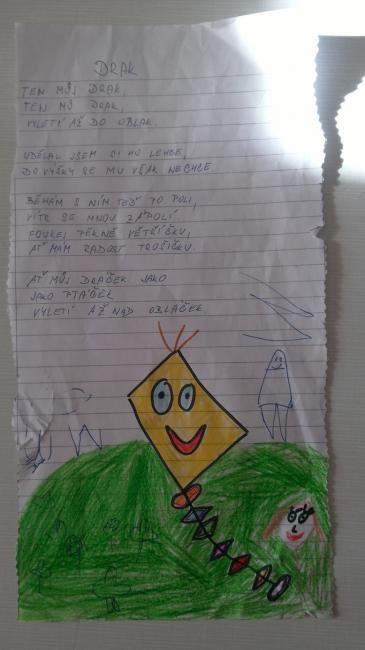 DRAK
TEN MŮJ DRAK,
TEN MŮ DRAK,
VYLETÍ AŽ DO OBLAK.
UDĚLAL JSEM SI HO LEHCE,
DO VÝŠKY SE MU VŠAK NECHCE
BĚHÁM S NÍM TEĎ PO POLI,
VÍTR SE MNOU ZÁPOLÍ
FOUKEJ PĚKNĚ VĚTŘÍČKU,
AŤ MÁM RADOST TROŠIČKU.
AŤ MŮJ DRÁČEK JAKO
JAKO PTÁČEK
VYLETÍ AŽ NAD OBLÁČEK